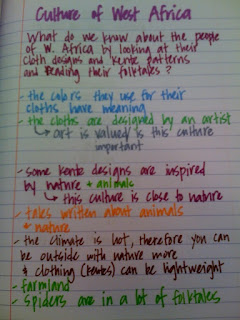 Culture of West Africa
What do we know about the people
of W. Africa by looking at their
cloth designs and kente patterns
and reading their folktales?
- the colors they use for their
cloths have meaning
- the cloths are designed by an artist
↳ art is valued is this culture
important
- some kente designs are inspired
by nature + animals
↳ this culture is close to nature
- tales written about animals
+ nature
- the climate is hot, therefore you can
be outside with nature more
+ clothing () can be lightweight
- farmland
- spiders are in a lot of folktales